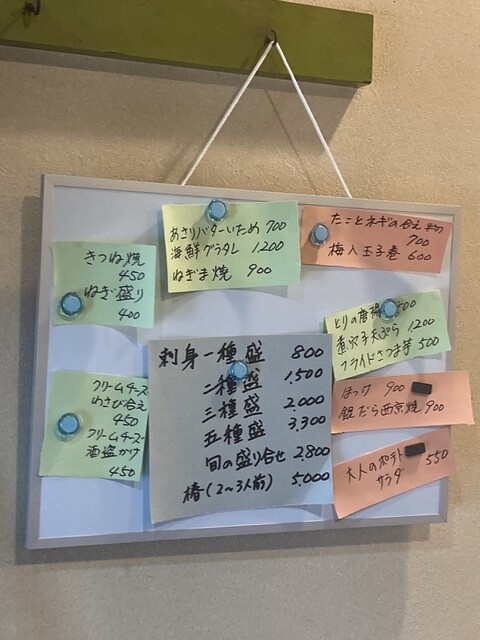 きつね焼
450
ねぎ盛り
400
あさりバターいため 700
海鮮グラタン 1,200
ねぎま焼 900
たことネギの合え
700
梅入玉子巻 600
とりの唐揚
真穴子天ぷら 1,200
フライドさつま芋 500
クリームチーズ
わさび合え
450
クリームチーズ
酒盗かけ
450
刺身一種盛 800
二種盛 1,500
三種盛 2,000
五種盛 3,300
旬の盛り合せ 2,800
椿(2~3人前) 5000
ほっけ 900
銀だら西京焼 900
大人のポテト 550
サラダ